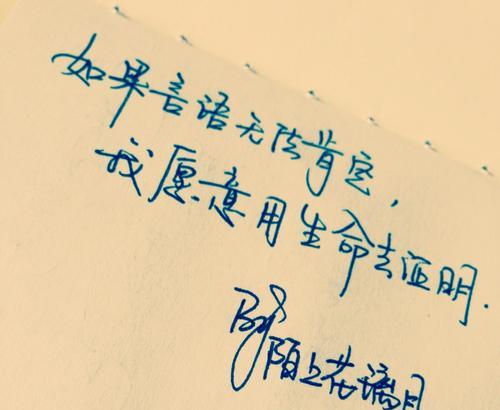 如果言语无法肯定,
我愿意用生命去证明.
By 陌上花漓月